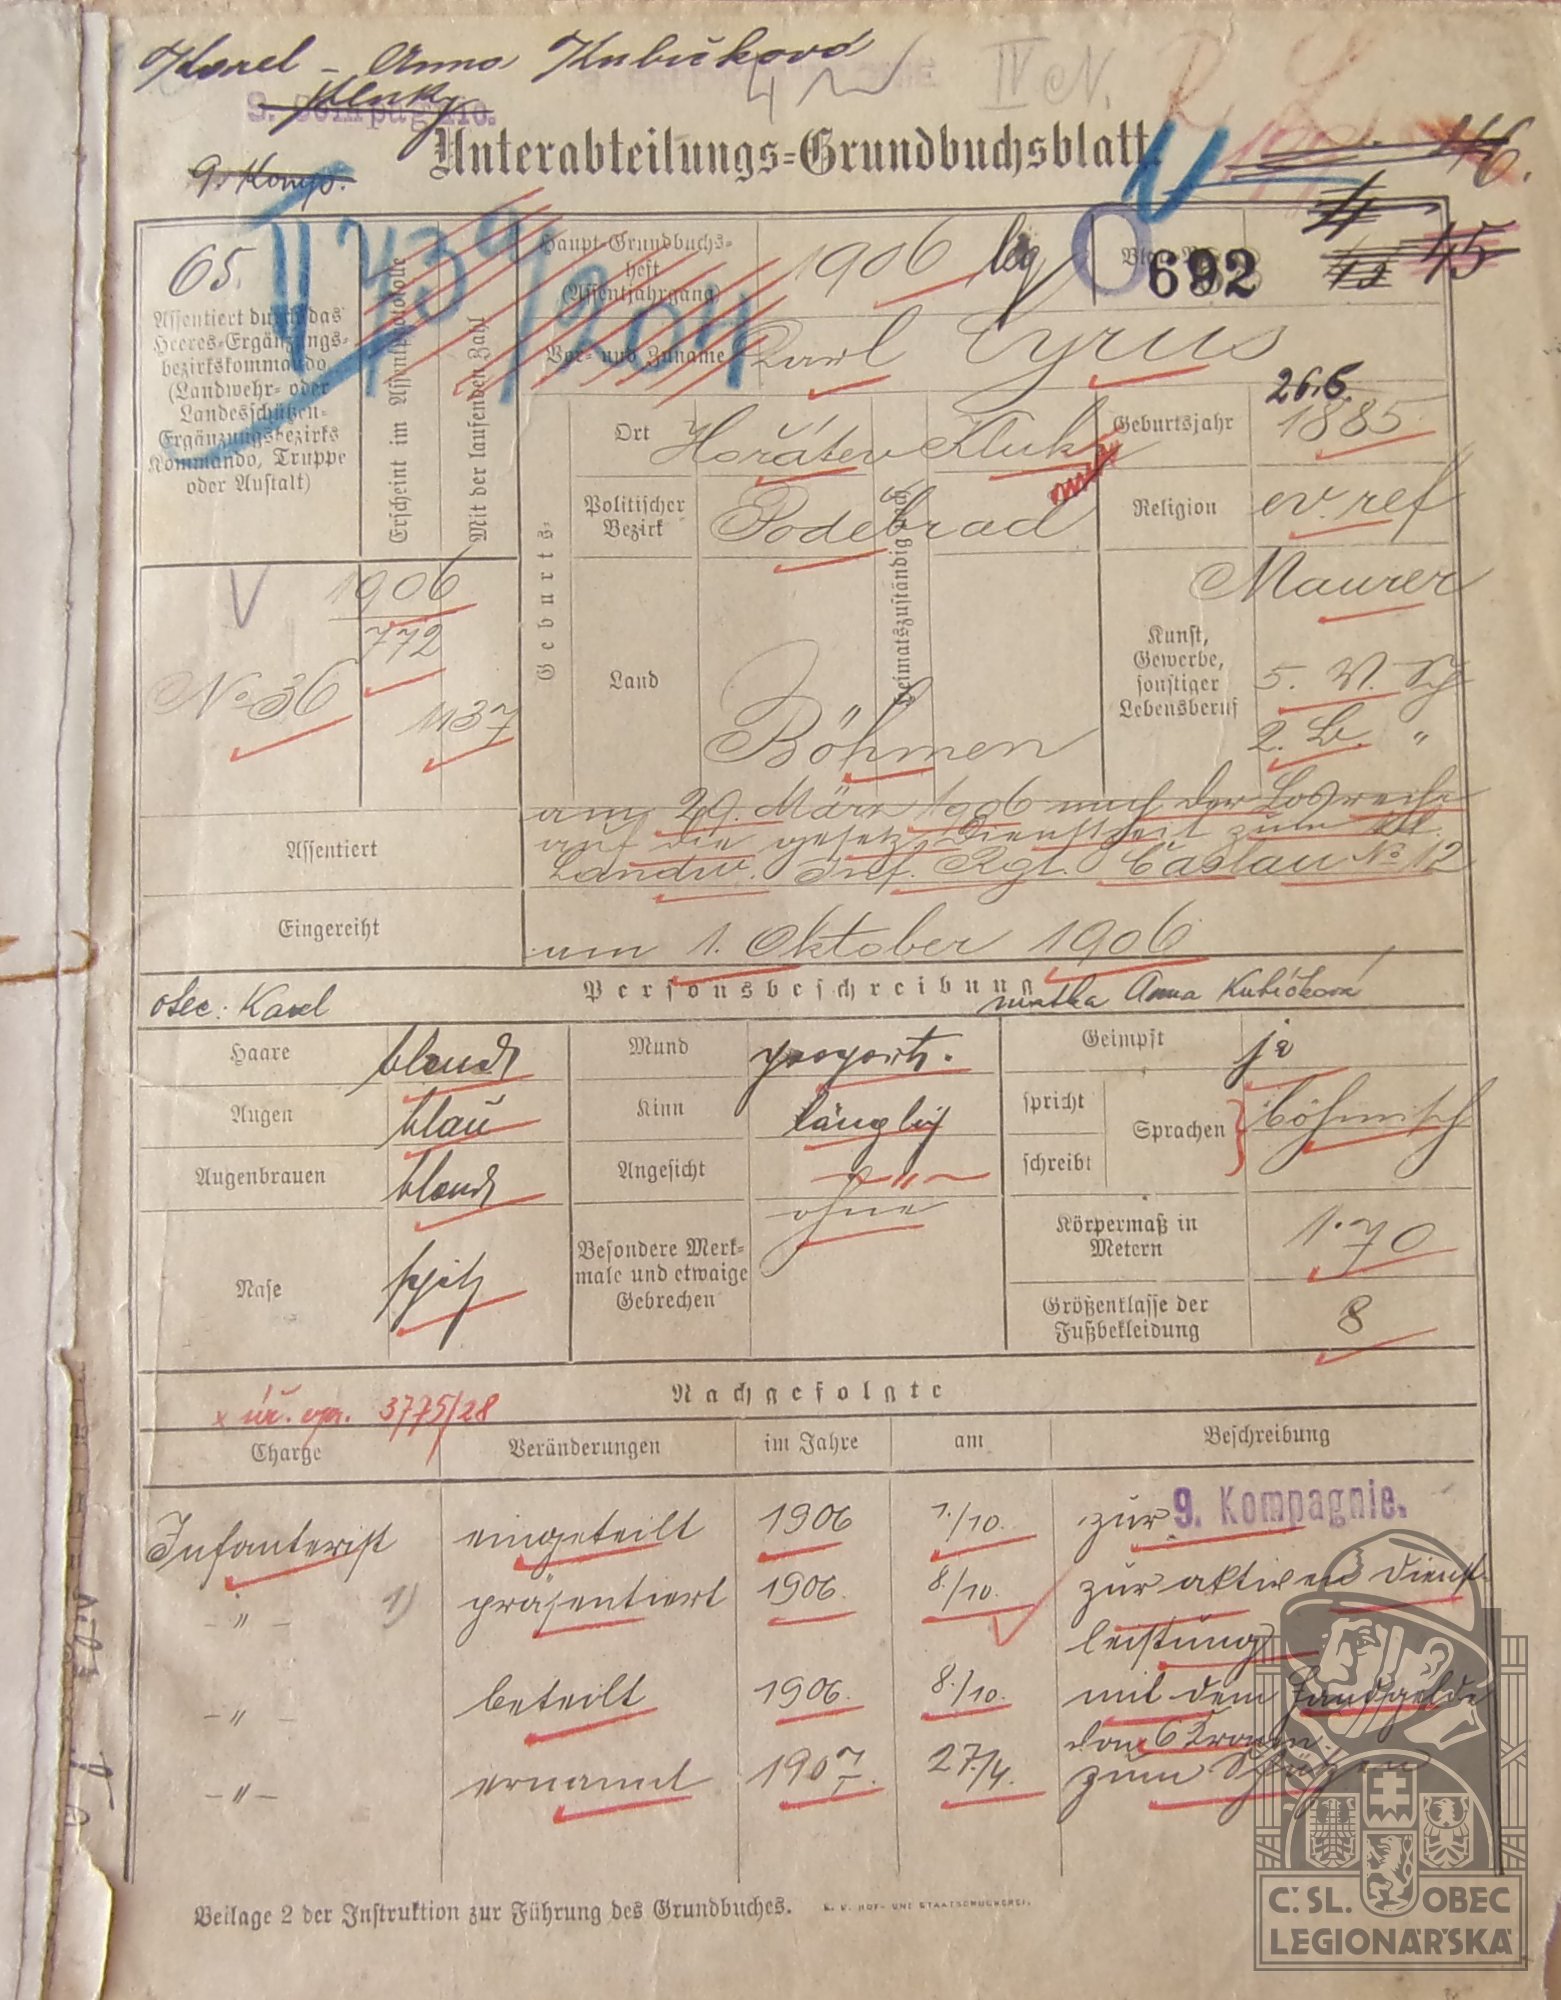 Karel - Anna Kubíčková
Kluky
9. Kompagnie.
IV N.
9. Komp.
Unterabteilungs=Grundbuchsblatt.
46.
45
65.
II 439/204
Haupt-Grundbuchs=
heft
(Assentjahrgang)
1906 leg
692
Assentiert durch das
Heeres=Ergänzungs=
bezirkskommando
(Landwehr= oder
Landesschützen=
Ergänzungsbezirks
Kommando, Truppe
oder Anstalt)
Erscheint im Assentprotokolle
Mit der laufenden Zahl
Vor= und Zuname
Karl Cyrus
Geburts=
Ort
Hořátev
Kluk
Heimatszuständig nach
Geburtsjahr
26.5.
1885
Politischer
Bezirk
Podebrad
Religion
ev. ref
V
1906
772
No 36
1137
Land
Böhmen
Maurer
Kunst,
Gewerbe,
sonstiger
Lebensberuf
5. V. Sch
2. B. "
Assentiert
am 29. März 1906 nach der Losreihe
auf die gesetz. Dienstzeit zum kk.
Landw. Inf. Rgt. Časlau No 12
Eingereiht
am 1. Oktober 1906
Personsbeschreibung
otec: Karel
matka Anna Kubíčková
Haare
blond
Mund
proport.
Geimpft
ja
Augen
blau
Kinn
länglich
spricht
schreibt
Sprachen
böhmisch
Augenbrauen
blond
Angesicht
- " -
Nase
spitz
Besondere Merk=
male und etwaige
Gebrechen
ohne
Körpermaß in
Metern
1.70
Größenklasse der
Fußbekleidung
8
Nachgefolgte
3775/28
Charge
Veränderungen
im Jahre
am
Beschreibung
Infanterist
eingeteilt
1906
1./10.
zur 9. Kompagnie.
- " -
1)
präsentiert
1906.
8./10.
zur aktiven Dienst-
leistung
- " -
beteilt
1906.
8./10.
mit dem Handgelde
von 6 Kronen.
- " -
ernannt
1907
27./4.
zum Schützen
Beilage 2 der Instruktion zur Führung des Grundbuches.
K. K. HOF- UND STAATSDRUCKEREI.
Č.SL. OBEC
LEGIONÁŘSKÁ